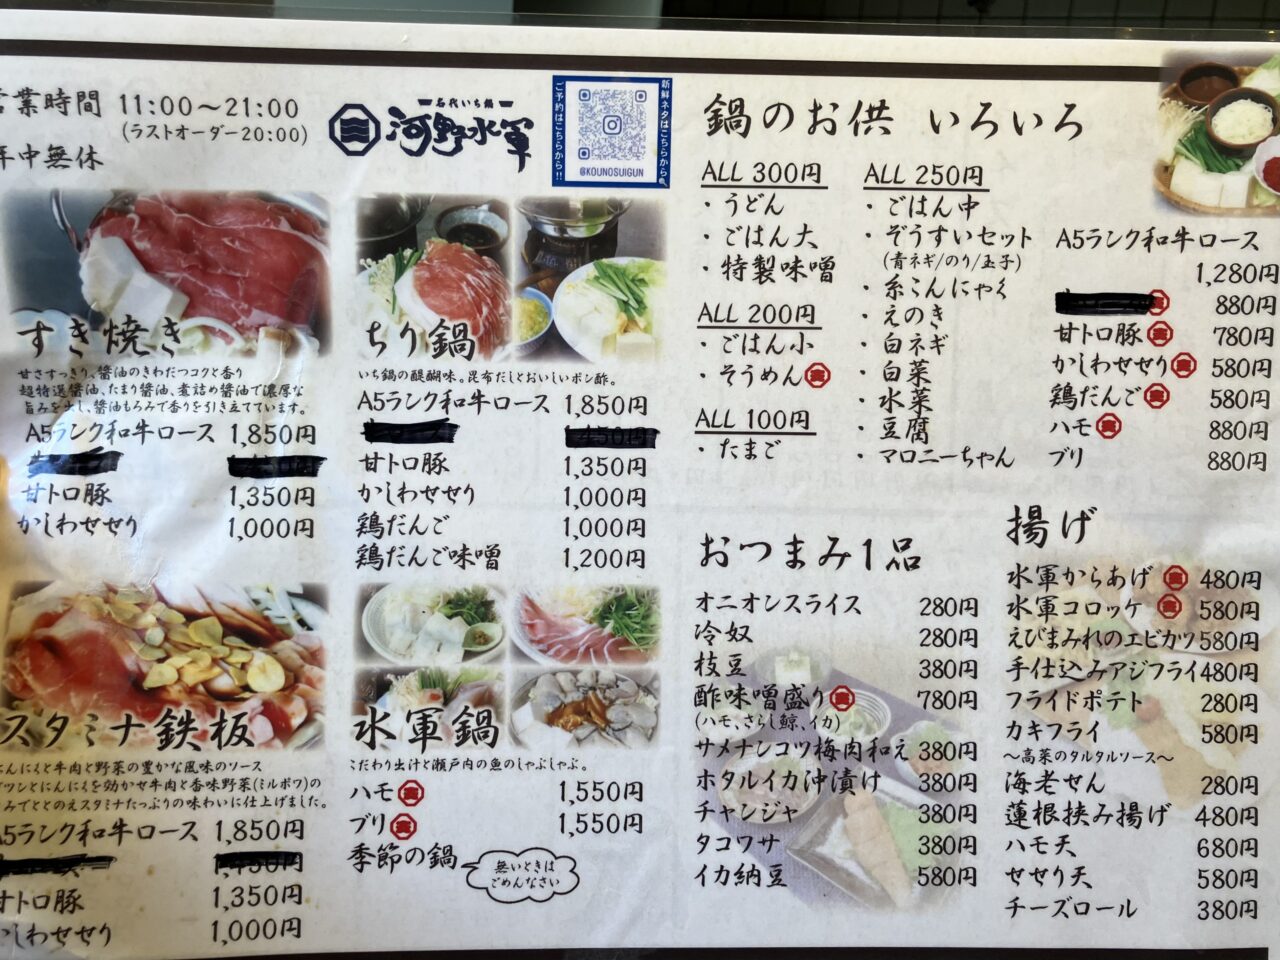 営業時間 11:00〜21:00
(ラストオーダー20:00)
年中無休
名代いち鍋
河野水軍
ご予約はこちらから!!
新鮮ネタはこちらから
@KOUNOSUIGUN
すき焼き
甘さすっきり、醤油のきわだつコクと香り
超特選醤油、たまり醤油、煮詰め醤油で濃厚な
旨みを出し、醤油もろみで香りを引き立てています。
A5ランク和牛ロース 1,850円
甘トロ豚 1,350円
かしわせせり 1,000円
ちり鍋
いち鍋の醍醐味。昆布だしとおいしいポン酢。
A5ランク和牛ロース 1,850円
甘トロ豚 1,350円
かしわせせり 1,000円
鶏だんご 1,000円
鶏だんご味噌 1,200円
スタミナ鉄板
にんにくと牛肉と野菜の豊かな風味のソース
ガツンとにんにくを効かせ牛肉と香味野菜(ミルポワ)の
うまみでととのえスタミナたっぷりの味わいに仕上げました。
A5ランク和牛ロース 1,850円
甘トロ豚 1,350円
かしわせせり 1,000円
水軍鍋
こだわり出汁と瀬戸内の魚のしゃぶしゃぶ。
ハモ 1,550円
ブリ 1,550円
季節の鍋
無いときは
ごめんなさい
鍋のお供 いろいろ
ALL 300円
・うどん
・ごはん大
・特製味噌
ALL 200円
・ごはん小
・そうめん
ALL 100円
・たまご
ALL 250円
・ごはん中
・ぞうすいセット
(青ネギ/のり/玉子)
・糸こんにゃく
・えのき
・白ネギ
・白菜
・水菜
・豆腐
・マロニーちゃん
A5ランク和牛ロース
1,280円
880円
甘トロ豚 780円
かしわせせり 580円
鶏だんご 580円
ハモ 880円
ブリ 880円
おつまみ1品
オニオンスライス 280円
冷奴 280円
枝豆 380円
酢味噌盛り 780円
(ハモ、さらし鯨、イカ)
サメナンコツ梅肉和え 380円
ホタルイカ沖漬け 380円
チャンジャ 380円
タコワサ 380円
イカ納豆 580円
揚げ
水軍からあげ 480円
水軍コロッケ 580円
えびまみれのエビカツ 580円
手仕込みアジフライ 480円
フライドポテト 280円
カキフライ 580円
〜高菜のタルタルソース〜
海老せん 280円
蓮根挟み揚げ 480円
ハモ天 680円
せせり天 580円
チーズロール 380円